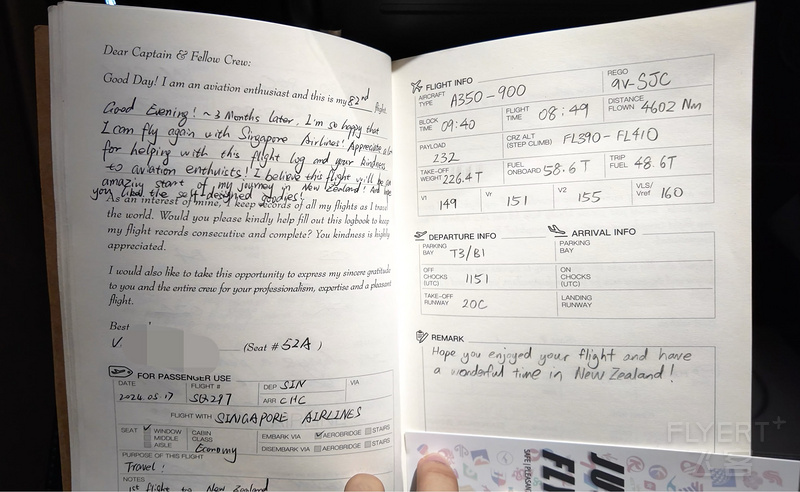 Dear Captain & Fellow Crew:
Good Day! I am an aviation enthusiast and this is my 82nd flight.
Good Evening! ~3 Months later, I'm so happy that
I can fly again with Singapore Airlines! Appreciate
for helping with this flight log and your kindness
to aviation enthuists! I believe this flight will be
amazing start of my journey in New Zealand! And hope
you like the self-designed goodies!
As an interest of mine, I keep records of all my flights as I travel
the world. Would you please kindly help fill out this logbook to keep
my flight records consecutive and complete? You kindness is highly
appreciated.
I would also like to take this opportunity to express my sincere gratitude
to you and the entire crew for your professionalism, expertise and a pleasant
flight.
Best
V.
(Seat # 52A )
FOR PASSENGER USE
DATE 2024.05.17
FLIGHT # SQ297
DEP SIN
ARR CHC
VIA
FLIGHT WITH SINGAPORE AIRLINES
SEAT WINDOW MIDDLE AISLE
CABIN CLASS Economy
EMBARK VIA AEROBRIDGE STAIRS
DISEMBARK VIA AEROBRIDGE STAIRS
PURPOSE OF THIS FLIGHT
Travel!
NOTES
1st flight to New Zealand
FLIGHT INFO
AIRCRAFT TYPE A350-900
REGO 9V-SJC
BLOCK TIME 09:40
FLIGHT TIME 08:49
DISTANCE FLOWN 4602 Nm
PAYLOAD 232
CRZ ALT (STEP CLIMB) FL390-FL410
TAKE-OFF WEIGHT 226.4T
FUEL ONBOARD 58.6T
TRIP FUEL 48.6T
V1 149
Vr 151
V2 155
VLS/Vref 160
DEPARTURE INFO
PARKING BAY T3/B1
OFF CHOCKS (UTC) 1151
TAKE-OFF RUNWAY 20C
ARRIVAL INFO
PARKING BAY
ON CHOCKS (UTC)
LANDING RUNWAY
REMARK
Hope you enjoyed your flight and have
a wonderful time in New Zealand!
FLYERT+